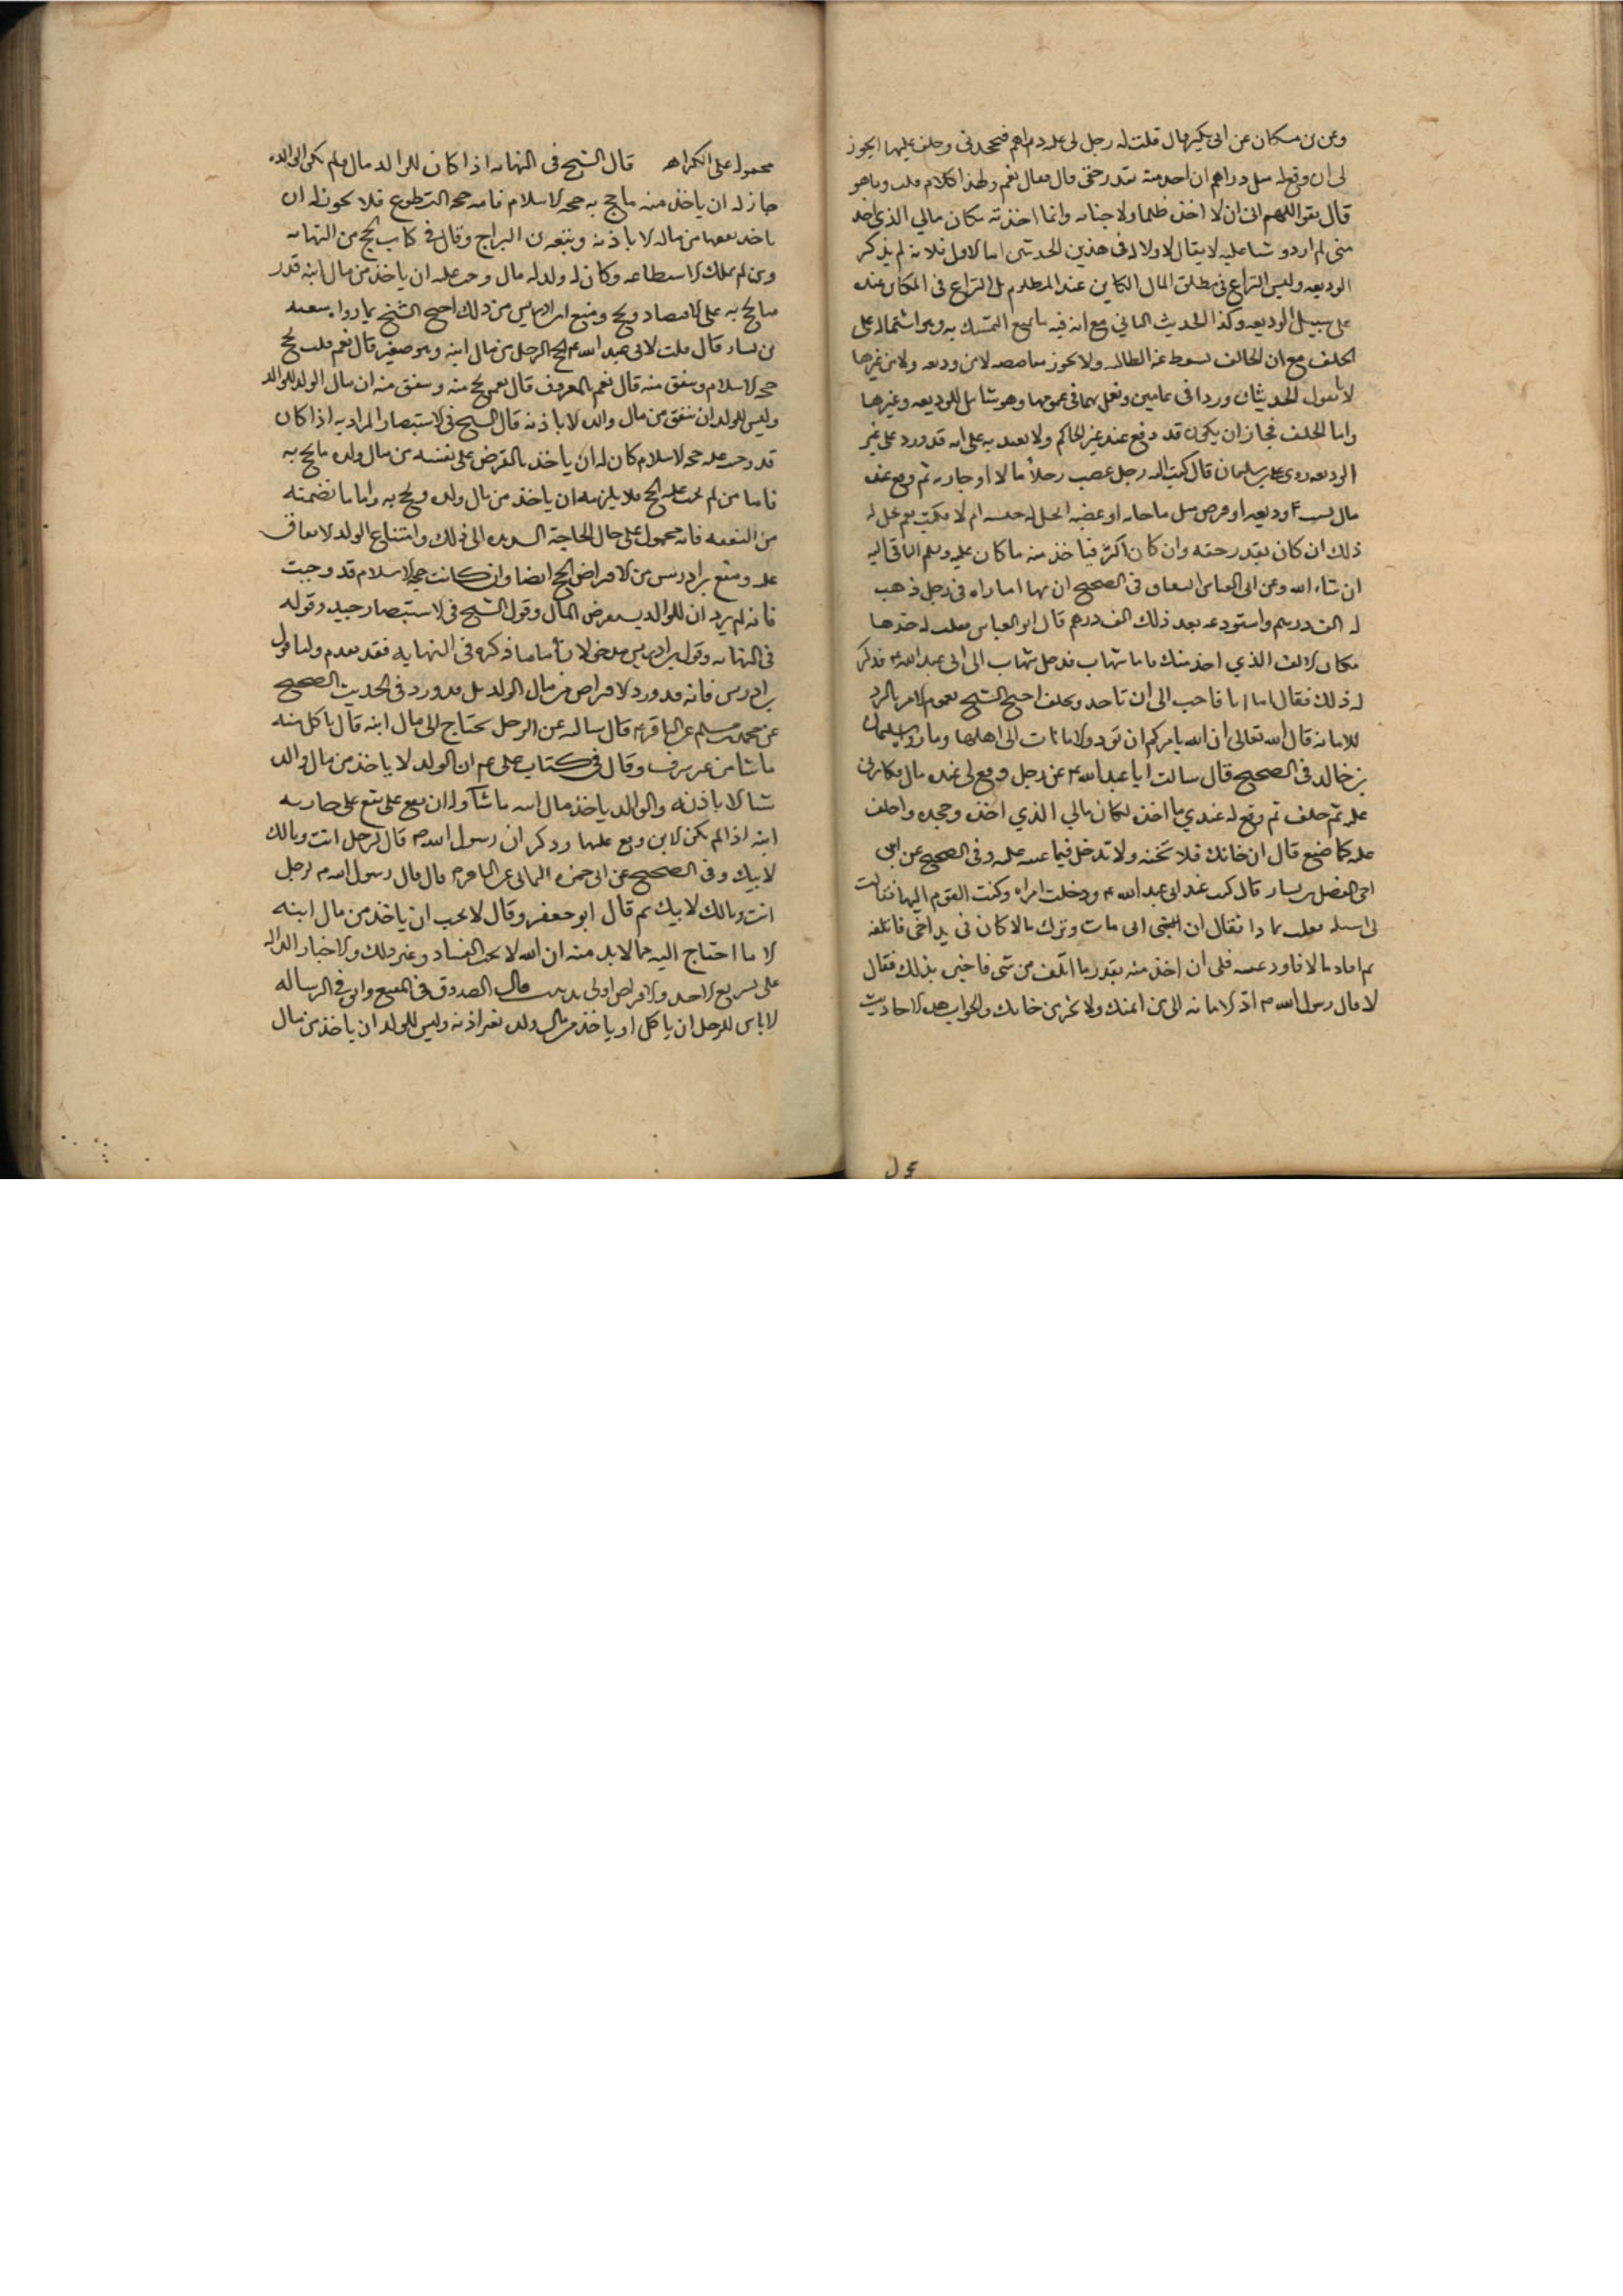 وعن بن مسكان عن ابى بكير قال قلت له رجل لى عليه دراهم فجحدنى وحلف عليها ايجوز
لى ان وقع له قبلى دراهم ان اخذ منه بقدر حقى قال فقال نعم ولهذا كلام قلت وما هو
قال يقول اللهم انى لا اخذه ظلما ولا خيانه وانما اخذته مكان مالي الذي اخذ
منى لم ازدد شيئا عليه لا يقال لا دلاله فى هذين الحديثين اما الاول فلانه لم يذكر
الوديعه وليس النزاع فى مطلق المال الكاين عند المظلوم بل النزاع فى الكاين عنده
على سبيل الوديعه وكذا الحديث الثاني مع انه فيه ما يمنع التمسك به وهو اشتماله على
الحلف مع ان الحالف يسقط عنه المطالبه ولا يجوز مقاصصه لا من وديعه ولا من غيرها
لانا نقول الحديثان وردا فى عامين ونعمل بهما فى عمومها وهو شامل للوديعه وغيرها
واما الحلف فجاز ان يكون قد وقع عند غير الحاكم ولا يعتد به على انه قد ورد على غير
الوديعه روى على بن سليمان قال كتب اليه رجل غصب رجلا مالا او جاريه ثم وقع عنده
مال بسبب وديعه او قرض مثل ما خانه او غصبه ايحل له حبسه ام لا فكتب نعم يحل له
ذلك ان كان بقدر حقه وان كان اكثر فياخذ منه ما كان عليه ويسلم الباقى اليه
ان شاء الله وعن ابى العباس البقباق فى الصحيح ان شهابا ماراه فى رجل ذهب
له الف درهم واستودعه بعد ذلك الف درهم قال ابو العباس فقلت له خذها
مكان الالف الذي اخذ منك فابا شهاب فدخل شهاب الى ابى عبد الله ع فذكر
له ذلك فقال اما انا فاحب الى ان تاخذ وتحلف احتج الشيخ بعموم الامر بالرد
للامانه قال الله تعالى ان الله يامركم ان تؤدوا الامانات الى اهلها وما رواه سليمان
بن خالد فى الصحيح قال سالت ابا عبد الله ع عن رجل وقع لى عنده مال فكابرنى
عليه ثم حلف ثم وقع له عندي مال اخذه لمكان مالي الذي اخذه وجحده واحلف
عليه كما صنع قال ان خانك فلا تخنه ولا تدخل فيما عبته عليه وفى الصحيح عن ابن
اخى الفضيل بن يسار قال كنت عند ابى عبد الله ع ودخلت امراه وكنت اقرب القوم اليها فقالت
لى اسئله فقلت عما ذا فقالت ان ابنى مات وترك مالا كان فى يد اخى فاتلفه
ثم افاد مالا فاودعنيه فلى ان اخذ منه بقدر ما اتلف من شى فاخبرته بذلك فقال
لا قال رسول الله ص اد الامانه الى من ائتمنك ولا تخن من خانك والجواب هذه الاحاديث
محموله على الكراهه قال الشيخ فى النهايه اذا كان للوالد مال ولم يكن لوالده
جاز له ان ياخذ منه ما يحج به حجه الاسلام فاما حجه التطوع فلا يجوز له ان
ياخذ نفقتها من ماله الا باذنه وتبعه بن البراج وقال فى كتاب الحج من النهايه
ومن لم يملك الاستطاعه وكان له ولد له مال وجب عليه ان ياخذ من مال ابنه قدر
ما يحج به على الاقتصاد ويحج ومنع ابن ادريس من ذلك احتج الشيخ بما رواه سعيد
بن يسار قال قلت لابى عبد الله ع ايحج الرجل من مال ابنه وهو صغير قال نعم قلت يحج
حجه الاسلام وينفق منه قال نعم بالمعروف قال نعم يحج منه وينفق منه ان مال الولد للوالد
وليس للولد ان ينفق من مال والده الا باذنه قال الشيخ فى الاستبصار المراد به اذا كان
قد وجبت عليه حجه الاسلام كان له ان ياخذ بالقرض على نفسه من مال ولده ما يحج به
فاما من لم يجب عليه الحج فلا يلزمه ان ياخذ من مال ولده ويحج به واما ما تضمنته
من النفقه فانه محمول على حال الحاجة الشديده الى ذلك وامتناع الولد من الانفاق
عليه ومنع بن ادريس من الاقتراض للحج ايضا وان كانت حجه الاسلام قد وجبت
فانه لم يرد ان للوالد يستقرض المال وقول الشيخ فى الاستبصار جيد وقوله
فى النهايه وقول بن ادريس مدخولان اما ما ذكره فى النهايه فقد تقدم واما قول
بن ادريس فانه قد ورد الاقتراض من مال الولد بل قد ورد فى الحديث الصحيح
عن محمد بن مسلم عن الباقر ع قال سالته عن الرجل يحتاج الى مال ابنه قال ياكل منه
ما شا من غير سرف وقال فى كتاب على ع م ان الولد لا ياخذ من مال والده
شيئا الا باذنه والوالد ياخذ مال ابنه ما شآ وله ان يقع على جاريه
ابنه اذا لم يكن الابن وقع عليها وذكر ان رسول الله ص قال لرجل انت ومالك
لابيك وفى الصحيح عن ابى حمزه الثمالى عن الباقر ع قال قال رسول الله ص لرجل
انت ومالك لابيك ثم قال ابو جعفر وقال لا يحب ان ياخذ من مال ابنه
الا ما احتاج اليه مما لا بد منه ان الله لا يحب الفساد وغير ذلك والاخبار الداله
على تسويغ الاخذ والاقتراض اولى قال الصدوق فى المقنع وابوه فى الرساله
لا باس للرجل ان ياكل او ياخذ من مال ولده بغير اذنه وليس للولد ان ياخذ من مال